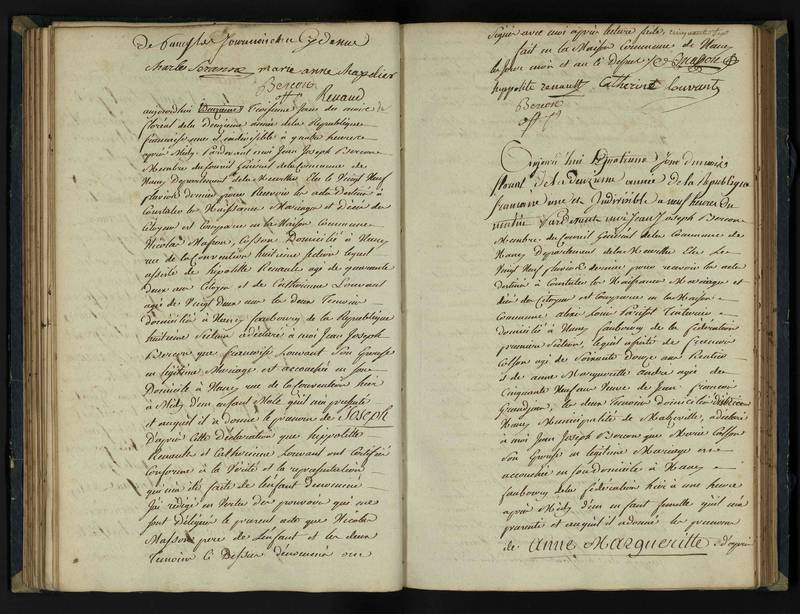 Charles marie anne Mapdier
Bercon
off. p. Renaud
aujourd'hui troisieme jour du mois de
floréal de la deuxieme année de la Republique
francaise une et indivisible à quatre heures
après Midy Pardevant moi Jean Joseph Bercon
Membre du Conseil Général de la Commune de
Nancy Departement de la Meurthe Elu le Vingt Neuf
pluviose dernier pour Recevoir les actes Destinés à
Constater les Naissances Mariages et Décès des
Citoyens est Comparu en la Maison Commune
Nicolas Masson, Domicilié à Nancy
rue de la Convention huitieme section lequel
assisté de hipolitte Renault agé de quarante
deux ans Citoyen et de Catherinne Louvant
agée de Vingt Deux ans les deux Temoins
domiciliés à Nancy faubourg de la Republique
huitieme Section a déclaré à moi Jean Joseph
Bercon que francoise Louvant Son Epouse
en légitime Mariage est accouchée en son
Domicile à Nancy rue de la Convention hier
à Midy d'un enfant Male qu'il m'a présenté
et auquel il a donné le prenom de Joseph
D'après Cette Déclaration que hippolitte
Renault et Catherinne Louvant ont Certifiée
Conforme à la Verité et la représentation
qui m'a été faite de l'enfant denommé
J'ai rédigé en Vertu des pouvoirs qui me
sont Délégués le présent acte que Nicolas
Masson pere de L'enfant et les deux
Temoins Ci Dessus denommés ont
Signé avec moi après lecture faite
fait en la Maison Commune de Nancy
les jour mois et an ci dessus Masson
hyppolite renault Catherine Louvant
Bercon
off. p.
Aujourd'hui quatrieme Jour du mois
floreal de la deuxieme année de la Republique
francaise une et Indivisible à neuf heures du
matin Pardevant moi Jean Joseph Bercon
Membre du Conseil Général de la Commune de
Nancy departement de la Meurthe Elu Le
Vingt Neuf pluviose dernier pour recevoir les actes
destinés à Constater les Naissances Mariages et
décès des Citoyens est Comparu en la Maison
Commune Parisot
domicilié à Nancy faubourg de la fédération
premiere Section, lequel assisté de francois
Colson agé de Soixante Douze ans Rentier
et de anne Margueritte andre agée de
Cinquante Neuf ans Veuve de Jean francois
Grandjean, les deux Temoins domiciliés
Nancy Municipalité de Malzeville, a déclaré
à moi Jean Joseph Bercon que Marie Colson
Son Epouse en légitime Mariage est
accouchée en son domicile à Nancy
faubourg de la fédération hier à une heure
après Midy d'un enfant femelle qu'il m'a
presenté et auquel il a donné les prenoms
de Anne Margueritte d'après